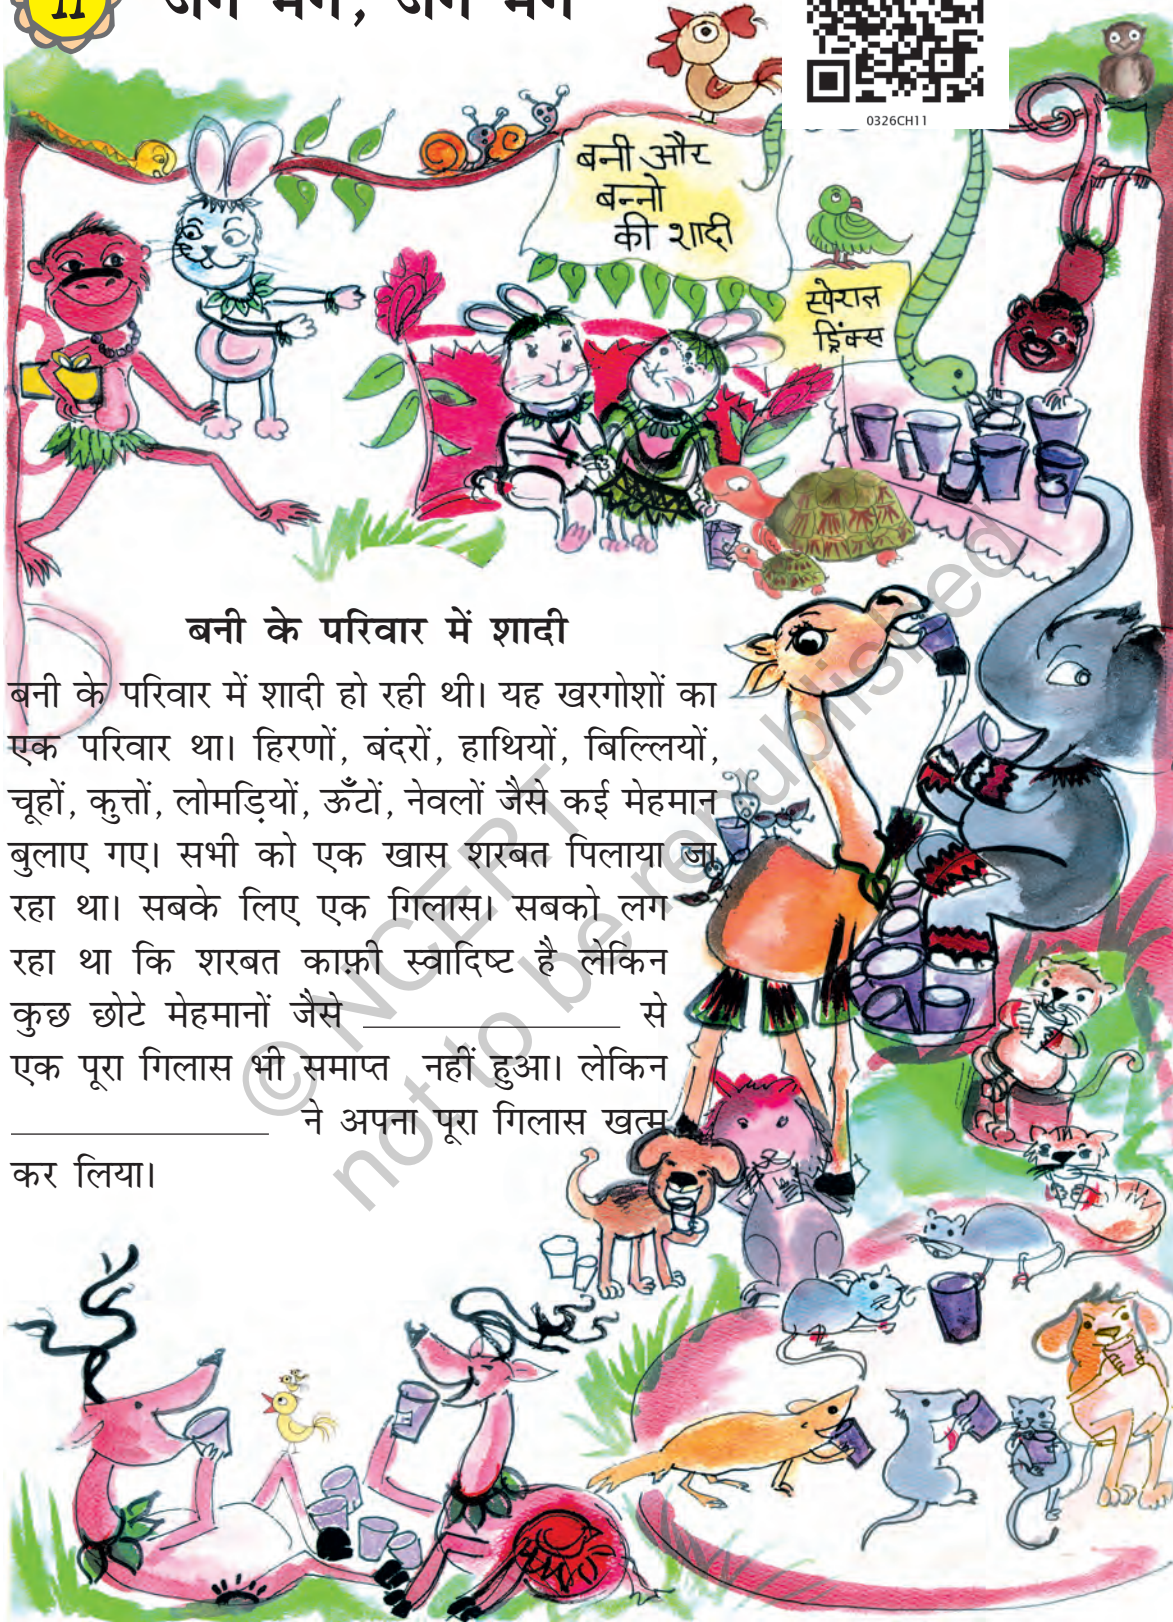 11
0326CH11
बनी और
बन्नो
की शादी
स्पेशल
ड्रिंक्स
बनी के परिवार में शादी
बनी के परिवार में शादी हो रही थी। यह खरगोशों का
एक परिवार था। हिरणों, बंदरों, हाथियों, बिल्लियों,
चूहों, कुत्तों, लोमड़ियों, ऊँटों, नेवलों जैसे कई मेहमान
बुलाए गए। सभी को एक खास शरबत पिलाया जा
रहा था। सबके लिए एक गिलास। सबको लग
रहा था कि शरबत काफ़ी स्वादिष्ट है लेकिन
कुछ छोटे मेहमानों जैसे ________________ से
एक पूरा गिलास भी समाप्त नहीं हुआ। लेकिन
________________ ने अपना पूरा गिलास खत्म
कर लिया।
© NCERT
not to be republished